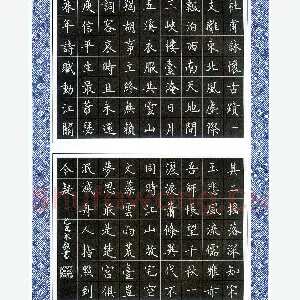 杜甫詠懷古蹟一
支離東北風塵際
漂泊西南天地間
三峽樓臺淹日月
五溪衣服共雲山
羯胡事主終無賴
詞客哀時且未還
庾信平生最蕭瑟
暮年詩賦動江關
其二搖落深知宋
玉悲風流儒雅亦
吾師悵望千秋一
灑淚蕭條異代不
同時江山故宅空
文藻雲雨荒臺豈
夢思最是楚宮俱
泯滅舟人指點到
今疑